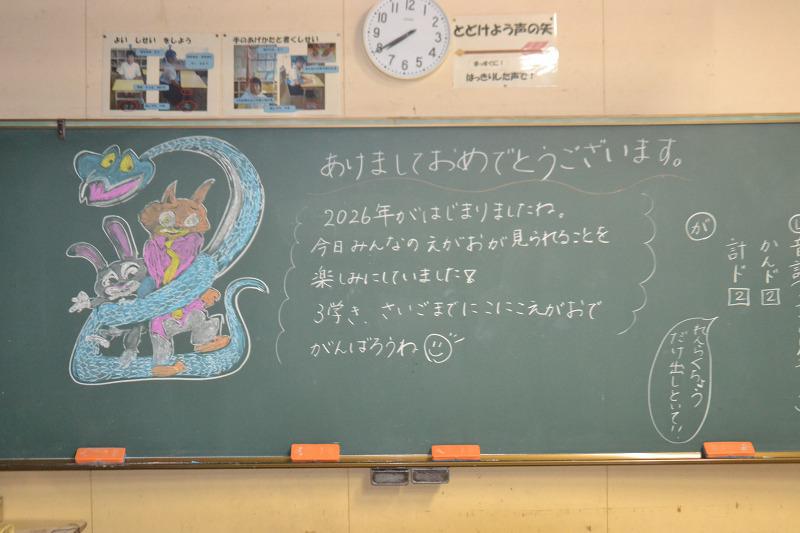 よい しせい をしよう
手のあげかたと書くしせい
12
1
2
3
4
5
6
7
8
9
10
11
とどけよう声の矢
まっすぐに！
はっきりした声で！
あけましておめでとうございます。
2026年がはじまりましたね。
今日みんなのえがおが見られることを
楽しみにしていました
3学き、さいごまでにこにこえがおで
がんばろうね
が
かんド 2
計ド 2
れんらくちょう
だけ出しといて!!